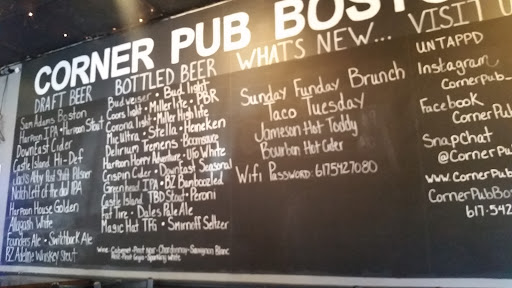 CORNER PUB BOSTO
DRAFT BEER
Sam Adams Boston
Harpoon IPA • Harpoon Stout
Downeast Cider
Castle Island Hi-Def
Jack's Abby Post Shift Pilsner
Notch Left of the dial IPA
Harpoon House Golden
Allagash White
Founders Ale • Switchback Ale
BZ Adeline Whiskey Stout
BOTTLED BEER
Budweiser • Bud light
Coors light • Miller lite • PBR
Corona light • Miller High life
Mic Ultra • Stella • Heineken
Delirium Tremens • Boomsauce
Harpoon Hoppy Adventure • Ufo White
Crispin Cider • Downeast Seasonal
Greenhead IPA • BZ Bamboozled
Castle Island TBD Stout • Peroni
Fat Tire • Dales Pale Ale
Magic Hat TFG • Smirnoff Seltzer
Wine - Cabernet • Pinot noir • Chardonnay • Sauvignon Blanc
Rosé • Pinot Grigio • Sparkling white
WHATS NEW...
Sunday Funday Brunch
Taco Tuesday
Jameson Hot Toddy
Bourbon Hot Cider
Wifi Password: 6175427080
VISIT U
UNTAPPD
Instagram
Cornerpub_
Facebook
CornerPub
SnapChat
@CornerP
www.Corner
CornerPubBos
617-542